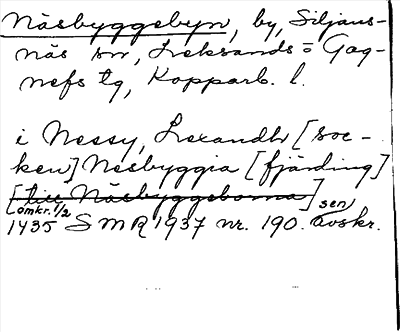 Näsbyggebyn, by, Siljans-
näs sn, Leksands o Gag-
nefs tg, Kopparb. l.
i Nessy, Lexandh [soc-
ken] Nesbyggia [fjärding]
[till Näsbyggeborna]
omkr. 1/2 sen
1435 SMR 1937 nr. 190. avskr.